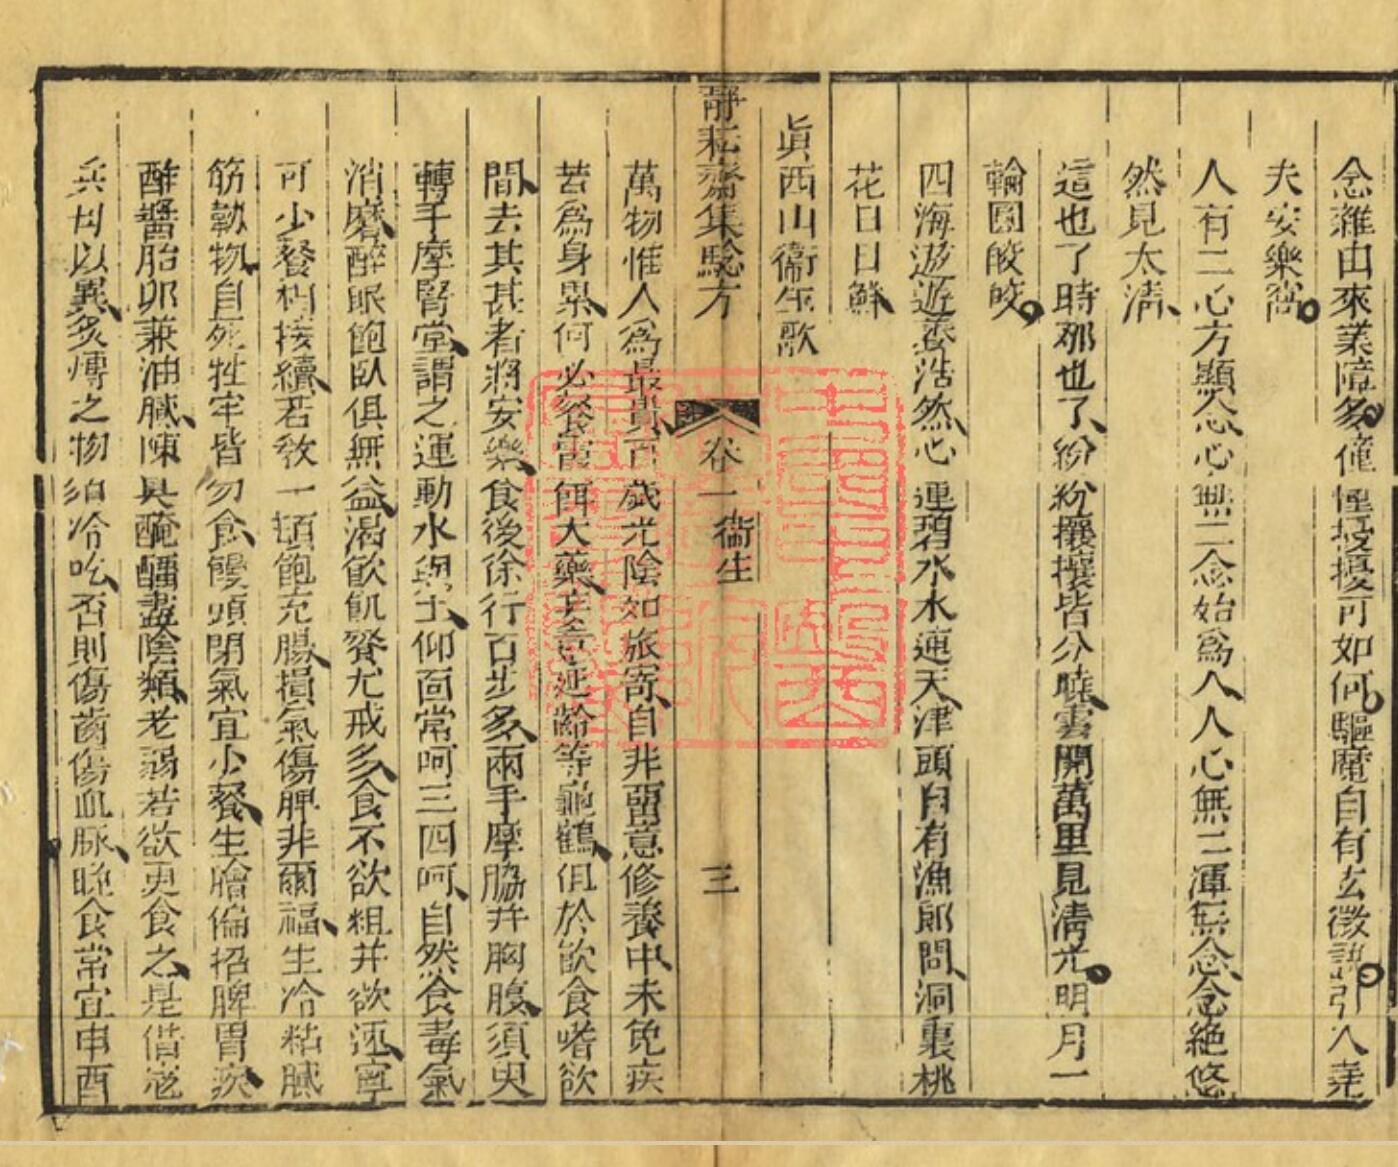 念雜由來業障多憧憧擾擾可如何驅魔自有玄微訣引入堯
夫安樂窩
人有二心方顯念心無二念始爲人人心無二渾無念念絕悠
然見太淸
這也了時那也了紛紛攘攘皆分曉雲開萬里見淸光明月一
輪圓皎皎
四海遨遊養浩然心連碧水水連天津頭自有漁郎問洞裏桃
花日日鮮
眞西山衞生歌
靜耘齋集驗方 卷一衞生 三
萬物惟人爲最貴百歲光陰如旅寄自非留意修養中未免疾
苦爲身累何必餐霞餌大藥妄意延齡等龜鶴但於飮食嗜欲
間去其甚者將安樂食後徐行百步多兩手摩脇并胸腹須臾
轉手摩腎堂謂之運動水與土仰面常呵三四呵自然食毒氣
消磨醉眠飽臥俱無益渴飮飢餐尤戒多食不欲粗并欲速寧
可少餐相接續若敎一頓飽充腸損氣傷脾非爾福生冷粘膩
筋韌物自死牲牢皆勿食饅頭閉氣宜小餐生膾偏招脾胃疾
酢醬胎卵兼油膩陳臭醃醯盡陰類老弱若欲更食之是借寇
兵因以異炙煿之物須冷吃否則傷齒傷血脉晚食常宜申酉